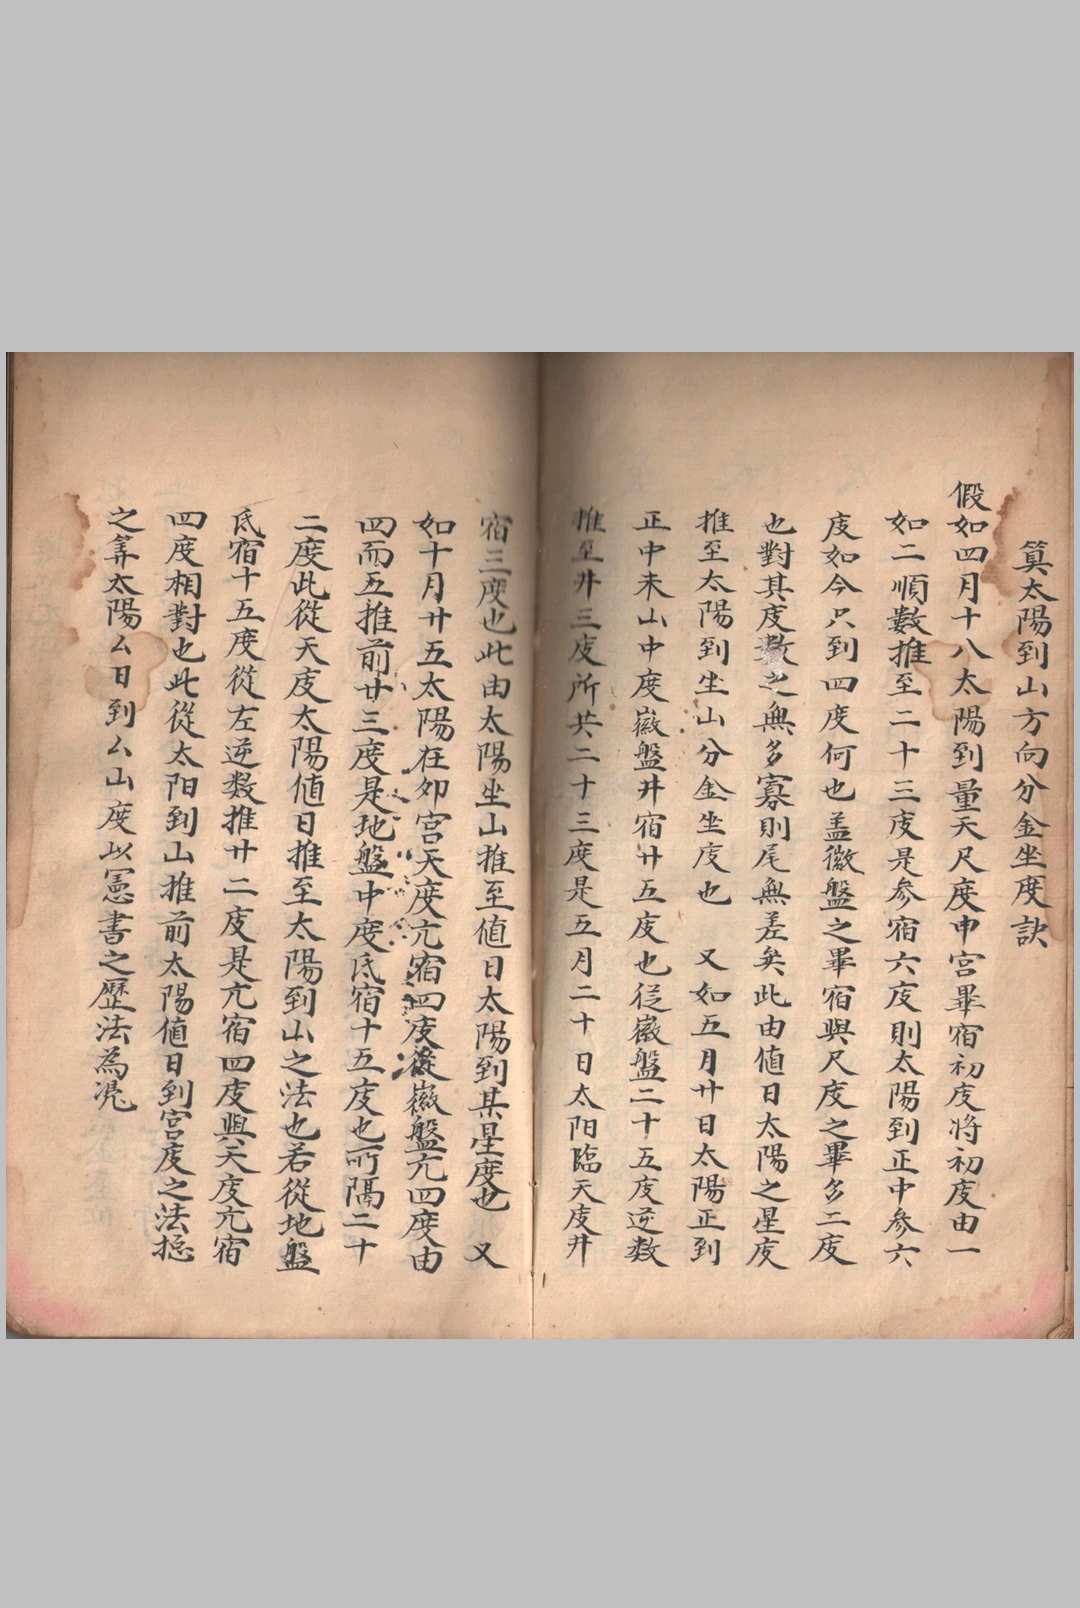 算太陽到山方向分金坐度訣
假如四月十八太陽到量天尺度申宮畢宿初度将初度由一
如二順數推至二十三度是参宿六度則太陽到正中参六
度如今只到四度何也盖徽盤之畢宿與尺度之畢多二度
也對其度數之無多寡則尾無差矣此由值日太陽之星度
推至太陽到坐山分金坐度也 又如五月廿日太陽正到
正中未山中度徽盤井宿廿五度也從徽盤二十五度逆数
推至井三度所共二十三度是五月二十日太阳臨天度井
宿三度也此由太陽坐山推至值日太陽到某星度也 又
如十月廿五太陽在卯宮天度亢宿四度從徽盤亢四度由
四而五推前廿三度是地盤中度氐宿十五度也所隔二十
二度此從天度太陽值日推至太陽到山之法也若從地盤
氐宿十五度從左逆数推廿二度是亢宿四度與天度亢宿
四度相對也此從太阳到山推前太陽值日到宮度之法捴
之筭太陽厶日到厶山度以憲書之歷法為凴